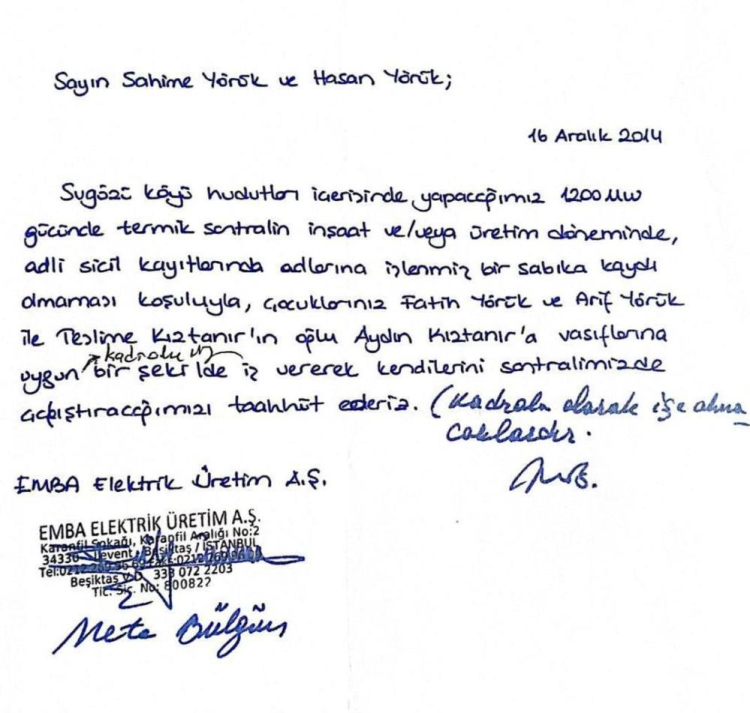 Sayın Sahime Yörük ve Hasan Yörük;
16 Aralık 2014
Sugözü köyü hudutları içerisinde yapacağımız 1200 MW
gücünde termik santralin inşaat ve/veya üretim döneminde,
adli sicil kayıtlarında adlarına işlenmiş bir sabıka kaydı
olmaması koşuluyla, çocuklarınız Fatih Yörük ve Arif Yörük
ile Teslime Kıztanır'ın oğlu Aydın Kıztanır'a vasıflarına
kadrolu
uygun bir şekilde iş vererek kendilerini santralimizde
çalıştıracağımızı taahhüt ederiz. (Kadrolu olarak işe alına
caklardır.
EMBA Elektrik Üretim A.Ş.
EMBA ELEKTRİK ÜRETİM A.Ş.
Karanfil Sokağı, Karanfil Aralığı No:2
34330 Levent, Beşiktaş / İSTANBUL
Beşiktaş V.D. 333 072 2203
Tic. Sic. No: 800822
Mete Bülgün